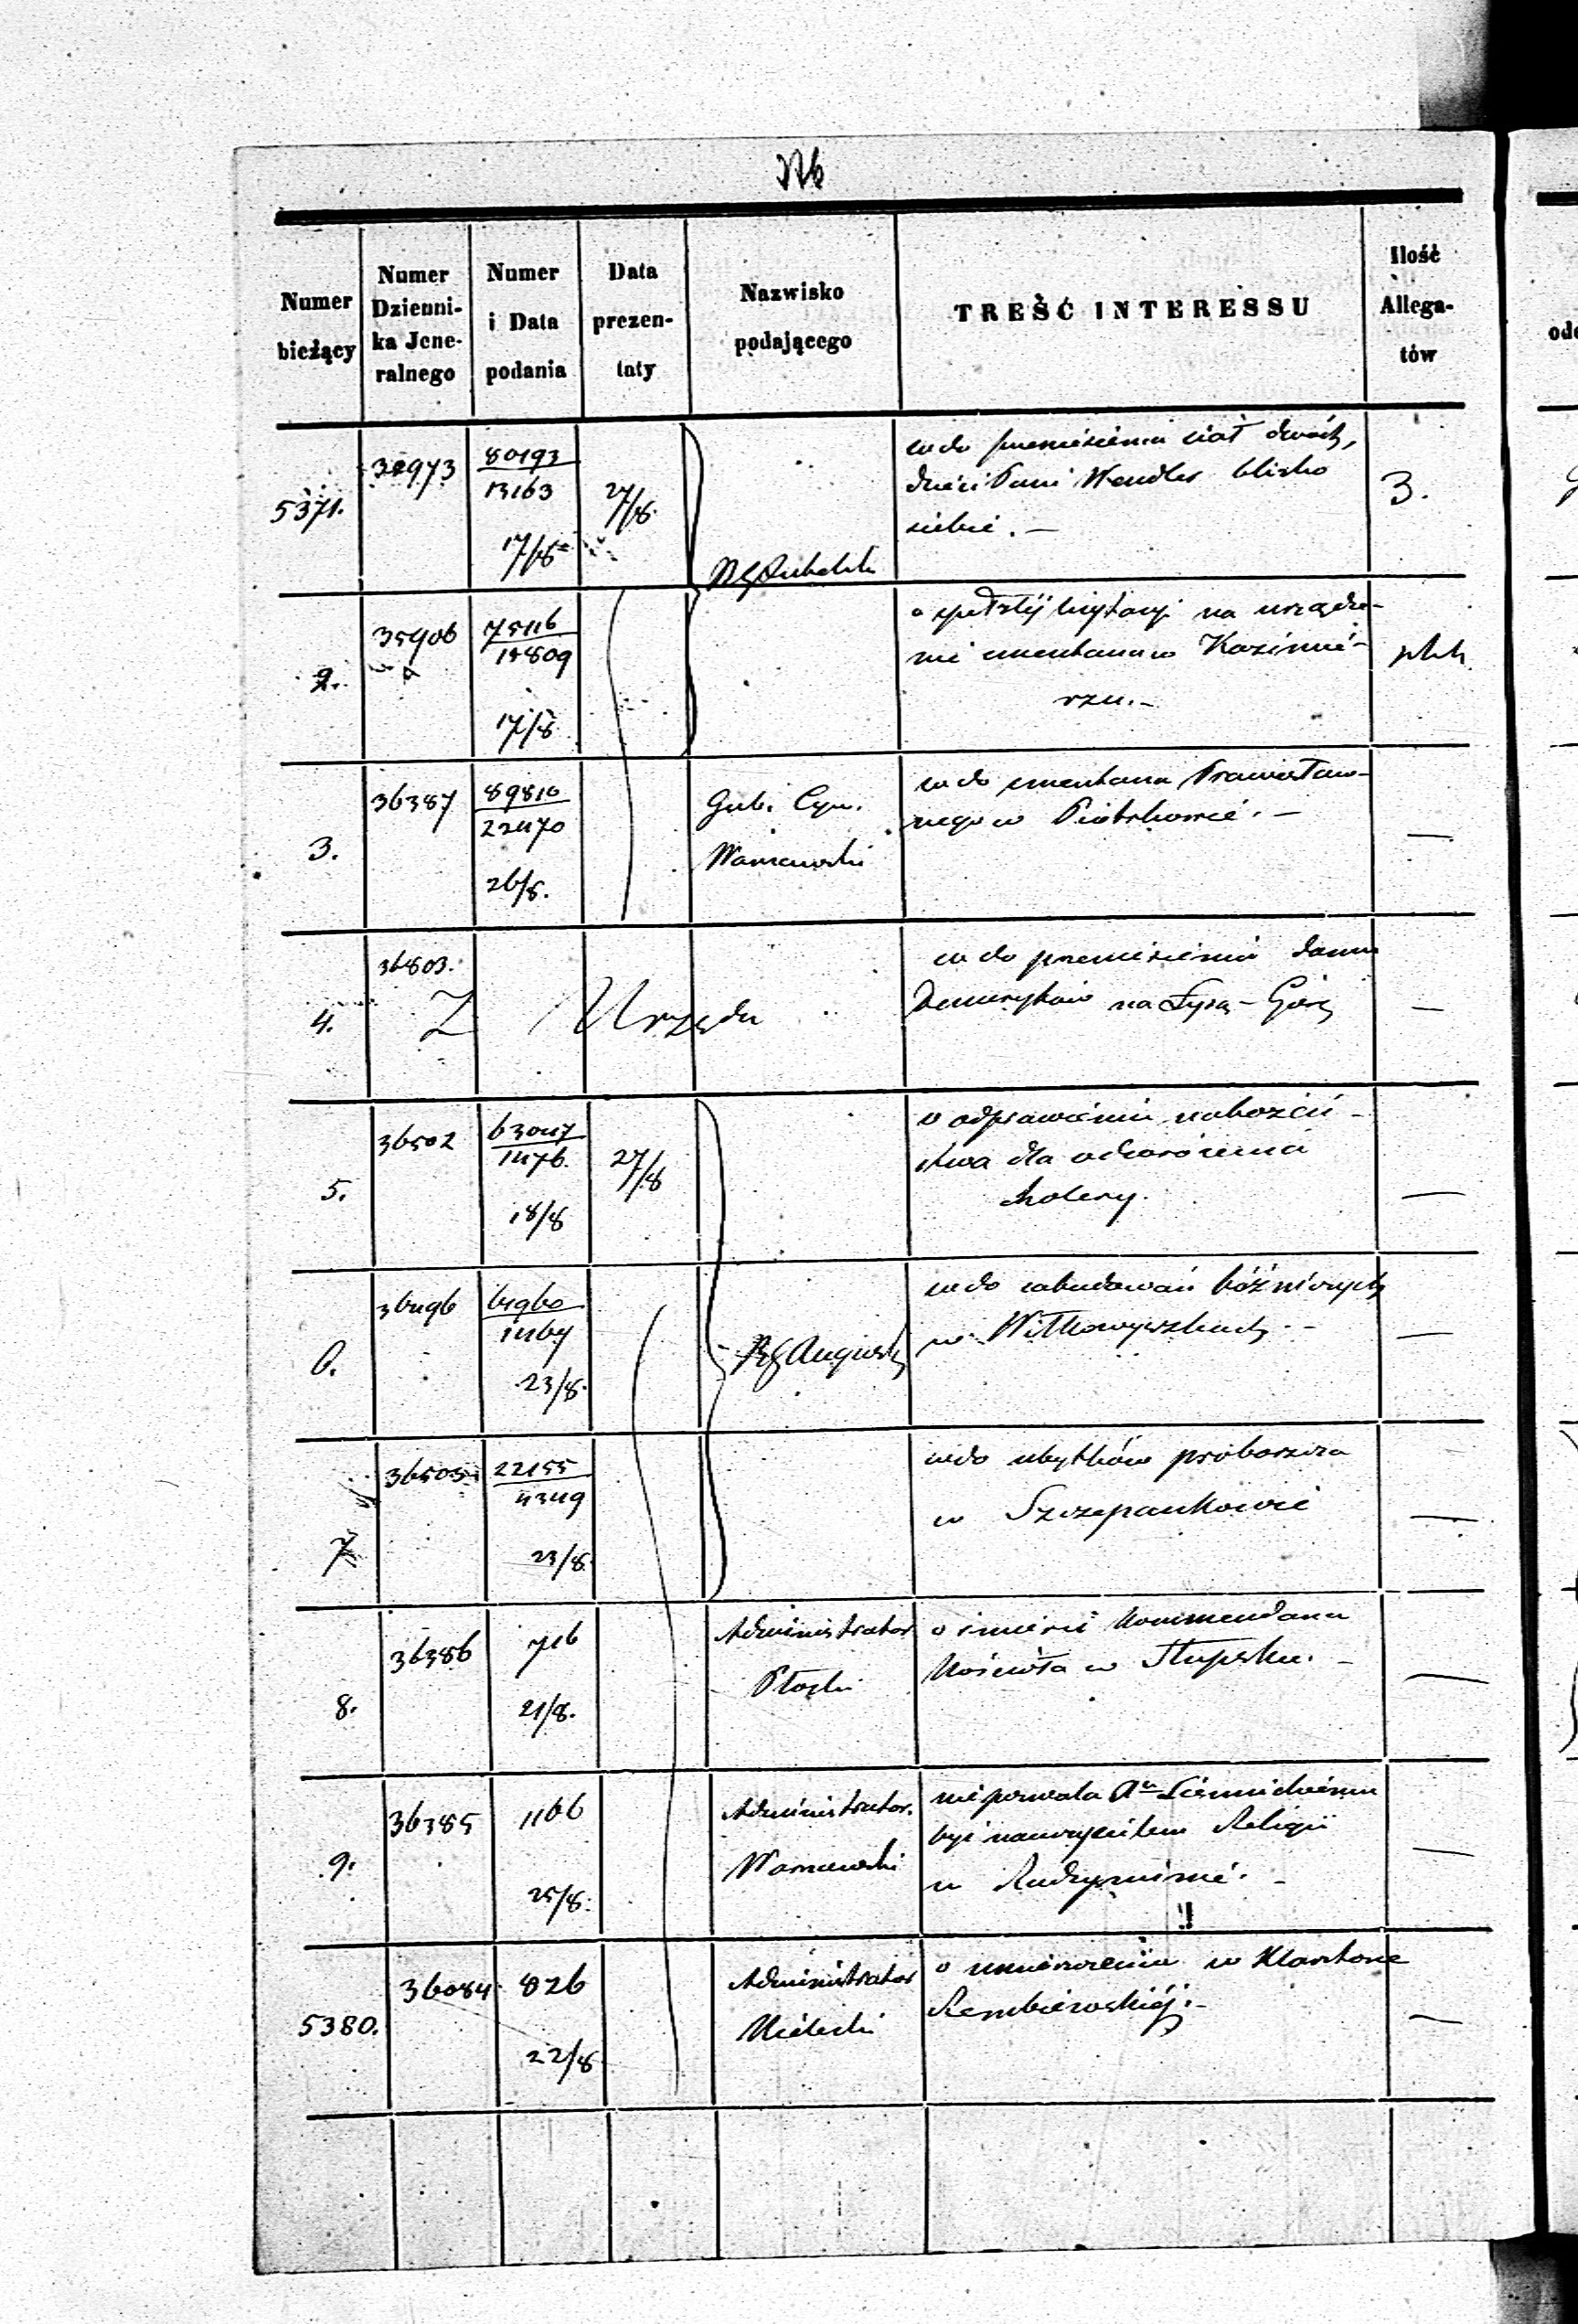 Numer bieżący
Numer Dzienni-
ka Jene-
ralnego
Numer i Data podania
Data prezen-
taty
Nazwisko podającego
TREŚĆ INTERESSU
Ilość Allega-
tów
5371.
80193
13163
17/8
27/8.
RG Lubelski
wdo przeniesienia ciał dwóch,
dzieci Pani Wendler blisko
siebie. —
3.
2.
35906
75116
17/8
o spełzłéj licytacyi na urządze-
nie cmentarza w Kazimie-
rzu. —
plik
3.
36387
89810
22470
26/8.
Gub. Cyw.
Warszawski
wdo cmentarza Prawosław-
nego w Piotrkowie. —
—
4.
36803.
Z Urzędu
wdo przeniesienia domu
Demerytów na Łysą-Górę
—
5.
36502
63047
1476.
18/8
27/8
o odprawienie nabożeń-
stwa dla odwrócenia
cholery.
—
6.
36496
61960
23/8.
RG Augustg
wdo zabudowań bóźniczych
w Wiłkowyszkach. —
—
7
36503
22155
4349
23/8.
wdo ubytków proboszcza
w Szczepankowie
—
8.
36386
716
21/8.
Administrator
Płocki
o śmierci Kommendarza
Kościoła w Słupsku. —
—
9.
36385
1166
25/8.
Administrator.
Warszawski
niepozwala
być nauczycielem Religii
w Radzyminie. —
—
!!
5380.
36084
826
22/8
Administrator
Kielecki
o umieszczenie w Klasztorze
Rembiewskiéj. —
—